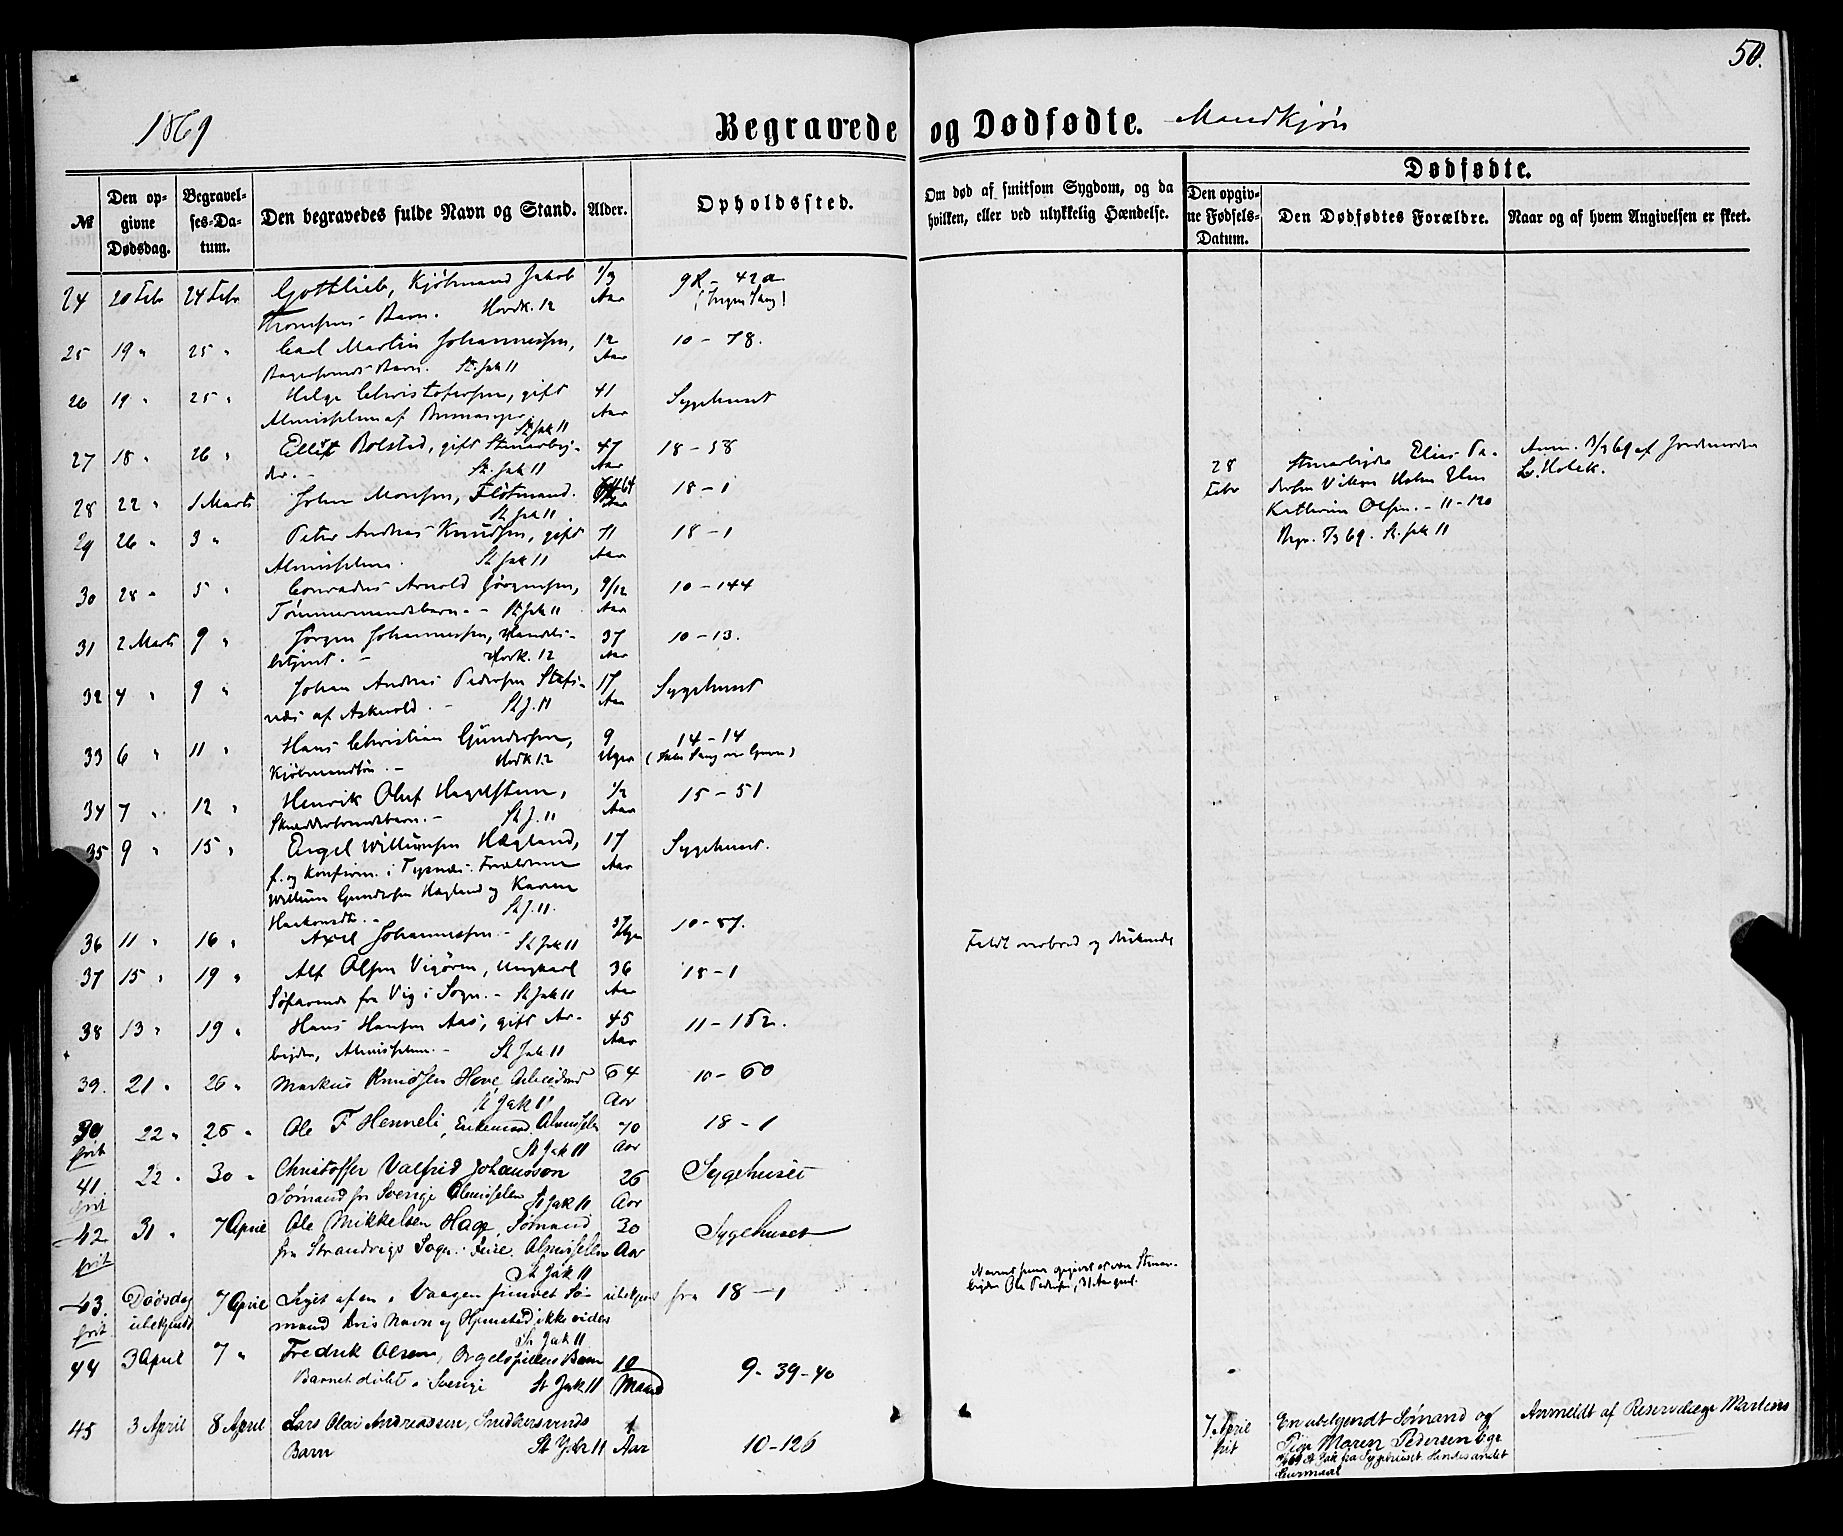 50.
1869
Begravede og Dødfødte. Mandkjøn
Dødfødte.
№
Den opgivne Dødsdag.
Begravelses-Datum.
Den begravedes fulde Navn og Stand.
Alder.
Opholdssted.
Om død af smitsom Sygdom, og da hvilken, eller ved ulykkelig Hændelse.
Den opgivne Fødsels-Datum.
Den Dødfødtes Forældre.
Naar og af hvem Angivelsen er skeet.
24 20 Febr 24 Febr Gottlieb, Kjøbmand Jakob 1/3 Aar 9 42a
Thomsens Barn. Hordk. 12
25 19 " 25 " Carl Martin Johannessen, 12 Aar 10-78.
Barn. St. Jak 11
26 19 " 25 " Helge Christophersen, gift 41 Aar Sygehuset
Almisselem af St Jak 11
27 18 " 26 " Bolstad, gift Stenarbej- 47 Aar 18-58
der. - St. Jak 11
28 22 " 1 Marts Johan Monsen, Fløtmand. 64 Aar 18-1
St Jak 11
29 26 " 3 " Peter Andreas Knudsen, gift 71 Aar 18-1
Almisselem. St Jak 11
30 28 " 5 " Conradus Arnold Jørgensen, 9/12 Aar 10-144
Tømmermandsbarn. - St. Jak 11
31 2 Marts 9 " Jørgen Johannessen, Handels- 37 Aar 10-13.
betjent. - Hordk. 12
32 4 " 9 " Johan Andreas Pedersen 17 Aar Sygehuset
af Askvold. - St J. 11
33 6 " 11 " Hans Christian Gundersen, 9 Uger 14-14
Kjøbmandssøn. - Hordk 12
34 7 " 12 " Henrik Oluf Hagelsteen, 1/2 Aar 15-51
Skræddersvendsbarn. - St J. 11
35 9 " 15 " Engel Willumsen Hægland, 17 Aar Sygehuset.
f. og Konfirm. i Tysnæs. Forældrene
Willum Gundersen Hægland og Karen
Haakonsdtr. - St J. 11.
36 11 " 16 " Axel Johannessen. - St Jak 11 Uger 10-87.
37 15 " 19 " Alf Olsen Vigøren, Ungkarl 36 Aar 18-1 Faldt overbord og druknede
Søfarende fra Vig i Sogn. - St Jak 11
38 13 " 19 " Hans Hansen Aas, gift Ar- 45 Aar 11-152.
bejder, Almisselem. - St Jak 11
39. 21 " 26 " Markus Knudsen Hove, Arbeidsmd 64 Aar 10-60
St Jak 11
22 " 26 " Ole F Henneli, Enkemand, Almisselem 70 Aar 18-1
frit St Jak 11
41 22 " 30 " Christoffer Valfrid Johansson 26 Aar Sygehuset
frit Sømand fra Sverige Almisselem St Jak 11
42 31 " 7 April Ole Mikkelsen Hage, Sømand 30 Aar Sygehuset
frit fra Strandvigs Sogn. Almisselem
St Jak 11
43. Dødsdag ubekjendt 7 April Liget af en i Vaagen funnet Sø- ubekjent fra 18-1
frit mand hvis Navn og Hjemsted ikke vides
St Jak 11
Navnet senere opgivet at være Stenar-
bejder Ole Pedersen, 31 Aar
44 3 April 7 " Fredrik Olsen, Orgelspillers Barn 10 Maaned 9-39-40
Barnet døbt i Sverige St Jak 11
45 3 April 8 April Lars Olai Andreassen, Snedkersvends 1 Aar 10-126
Barn St Jak 11
28 Febr Stenarbejder Elias Pe-
dersen Holm Elen
Kathrine Olsen. - 11-120
Begr. 7/3 69. St. Jak 11
Anm. 3/3 69 af Jordmoder
L. Holck.
7 April frit En ubekjendt Sømand og
Pige Maren Pedersen
St Jak fra Sygehuset. Hendes andet
Leiermaal
Anmeldt af Reservelæge Martens